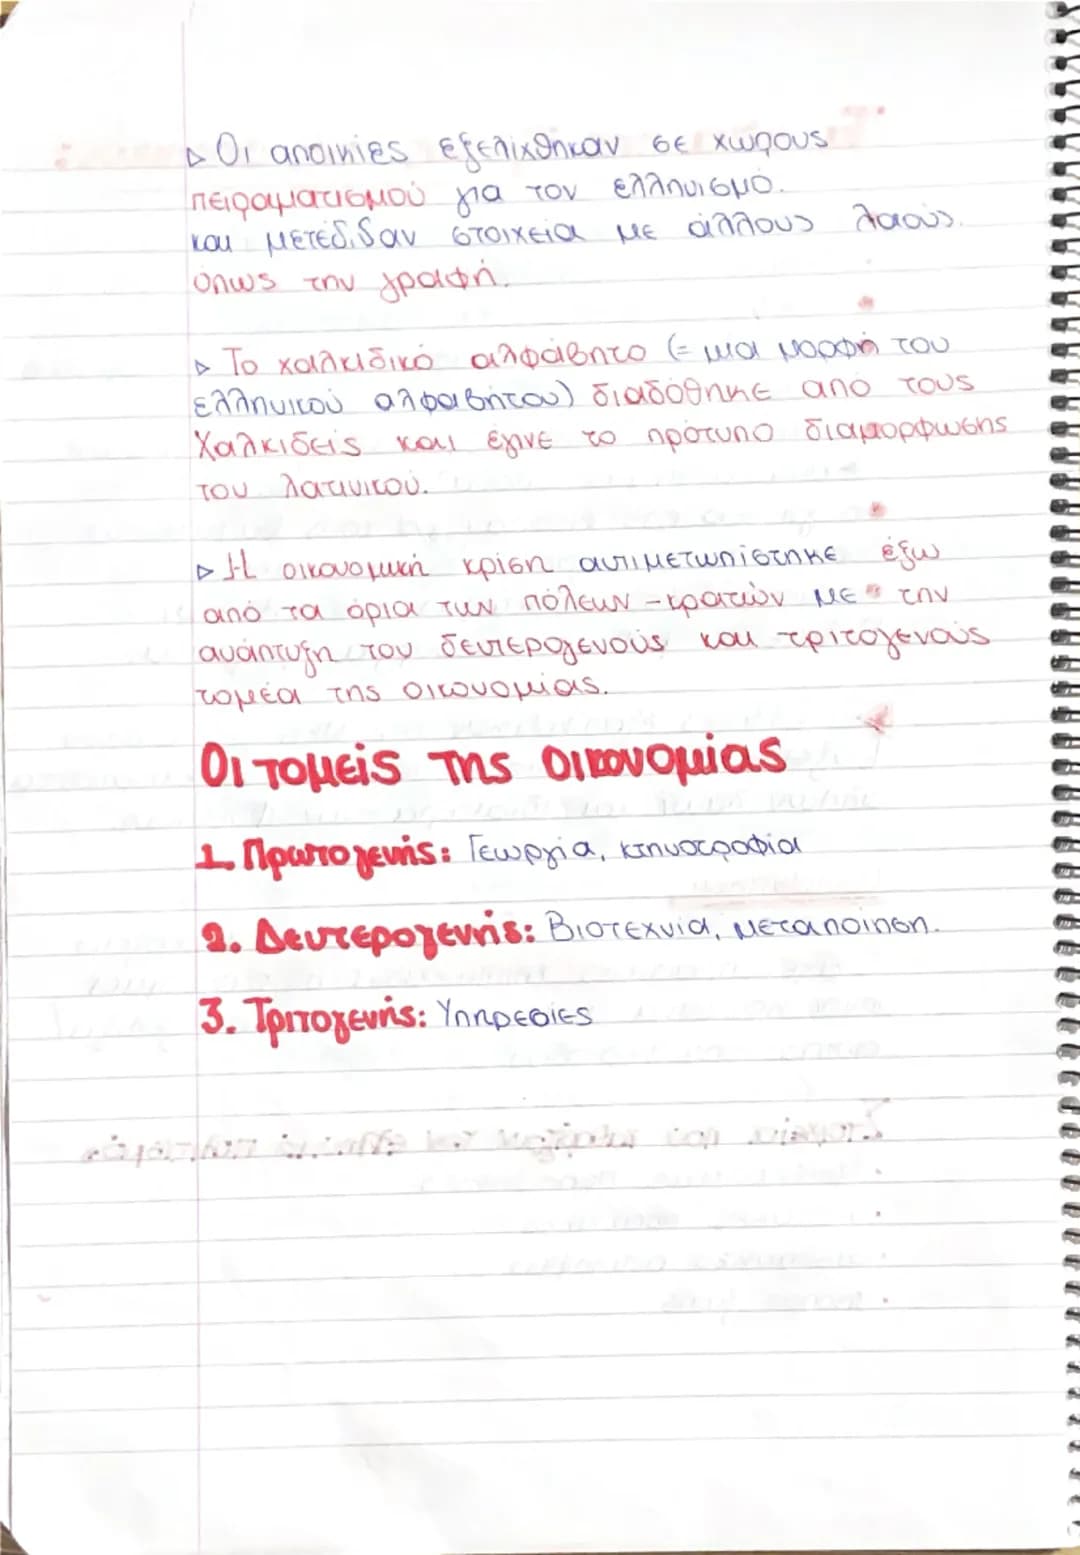 ▷ Οι αποικίες εξελίχθηκαν σε χώρους
πειραματισμού για τον ελληνισμό.
και μετέδιδαν στοιχεία με άλλους λαούς.
όπως την γραφή.
▷ Το χαλκιδικό αλφάβητο (= μια μορφή του
ελληνικού αλφαβήτου) διαδόθηκε από τους
Χαλκιδείς και έγινε το πρότυπο διαμορφωσης
του λατινικού.
▷ Η οικονομική κρίση αντιμετωπίστηκε έξω
από τα όρια των πόλεων - κρατών με την
ανάπτυξη του δευτερογενούς και τριτογενούς
τομέα της οικονομίας.
Οι τομείς της οικονομίας
1. Πρωτογενής: Γεωργία, κτηνοτροφία
2. Δευτερογενής: Βιοτεχνία, μεταποίηση.
3. Τριτογενής: Υπηρεσίες